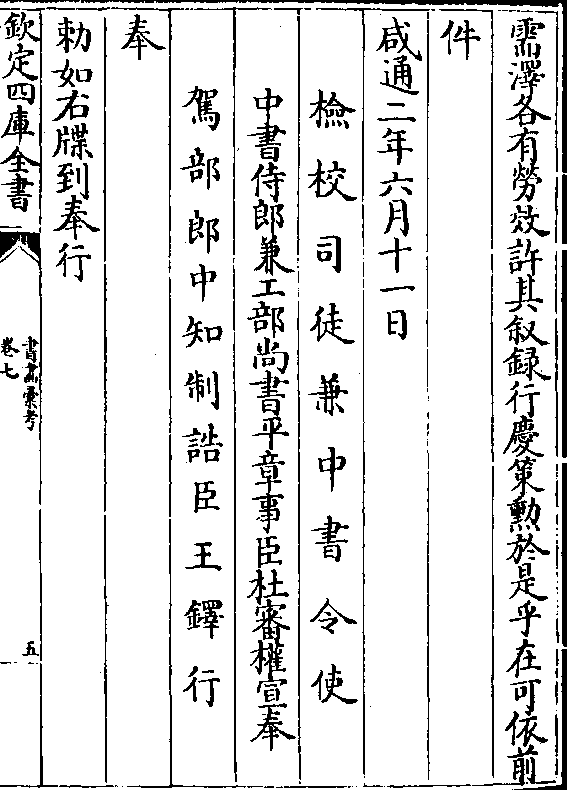 霈澤各有勞效許其叙録行慶䇿勲於是乎在可依前
件
咸通二年六月十一日
檢校司徒兼中書令使
中書侍郎兼工部尚書平章事臣杜審權宣奉
駕部郎中知制誥臣王鐸行
奉
勅如右牒到奉行
欽定四庫全書
書畫彚考
卷七
五